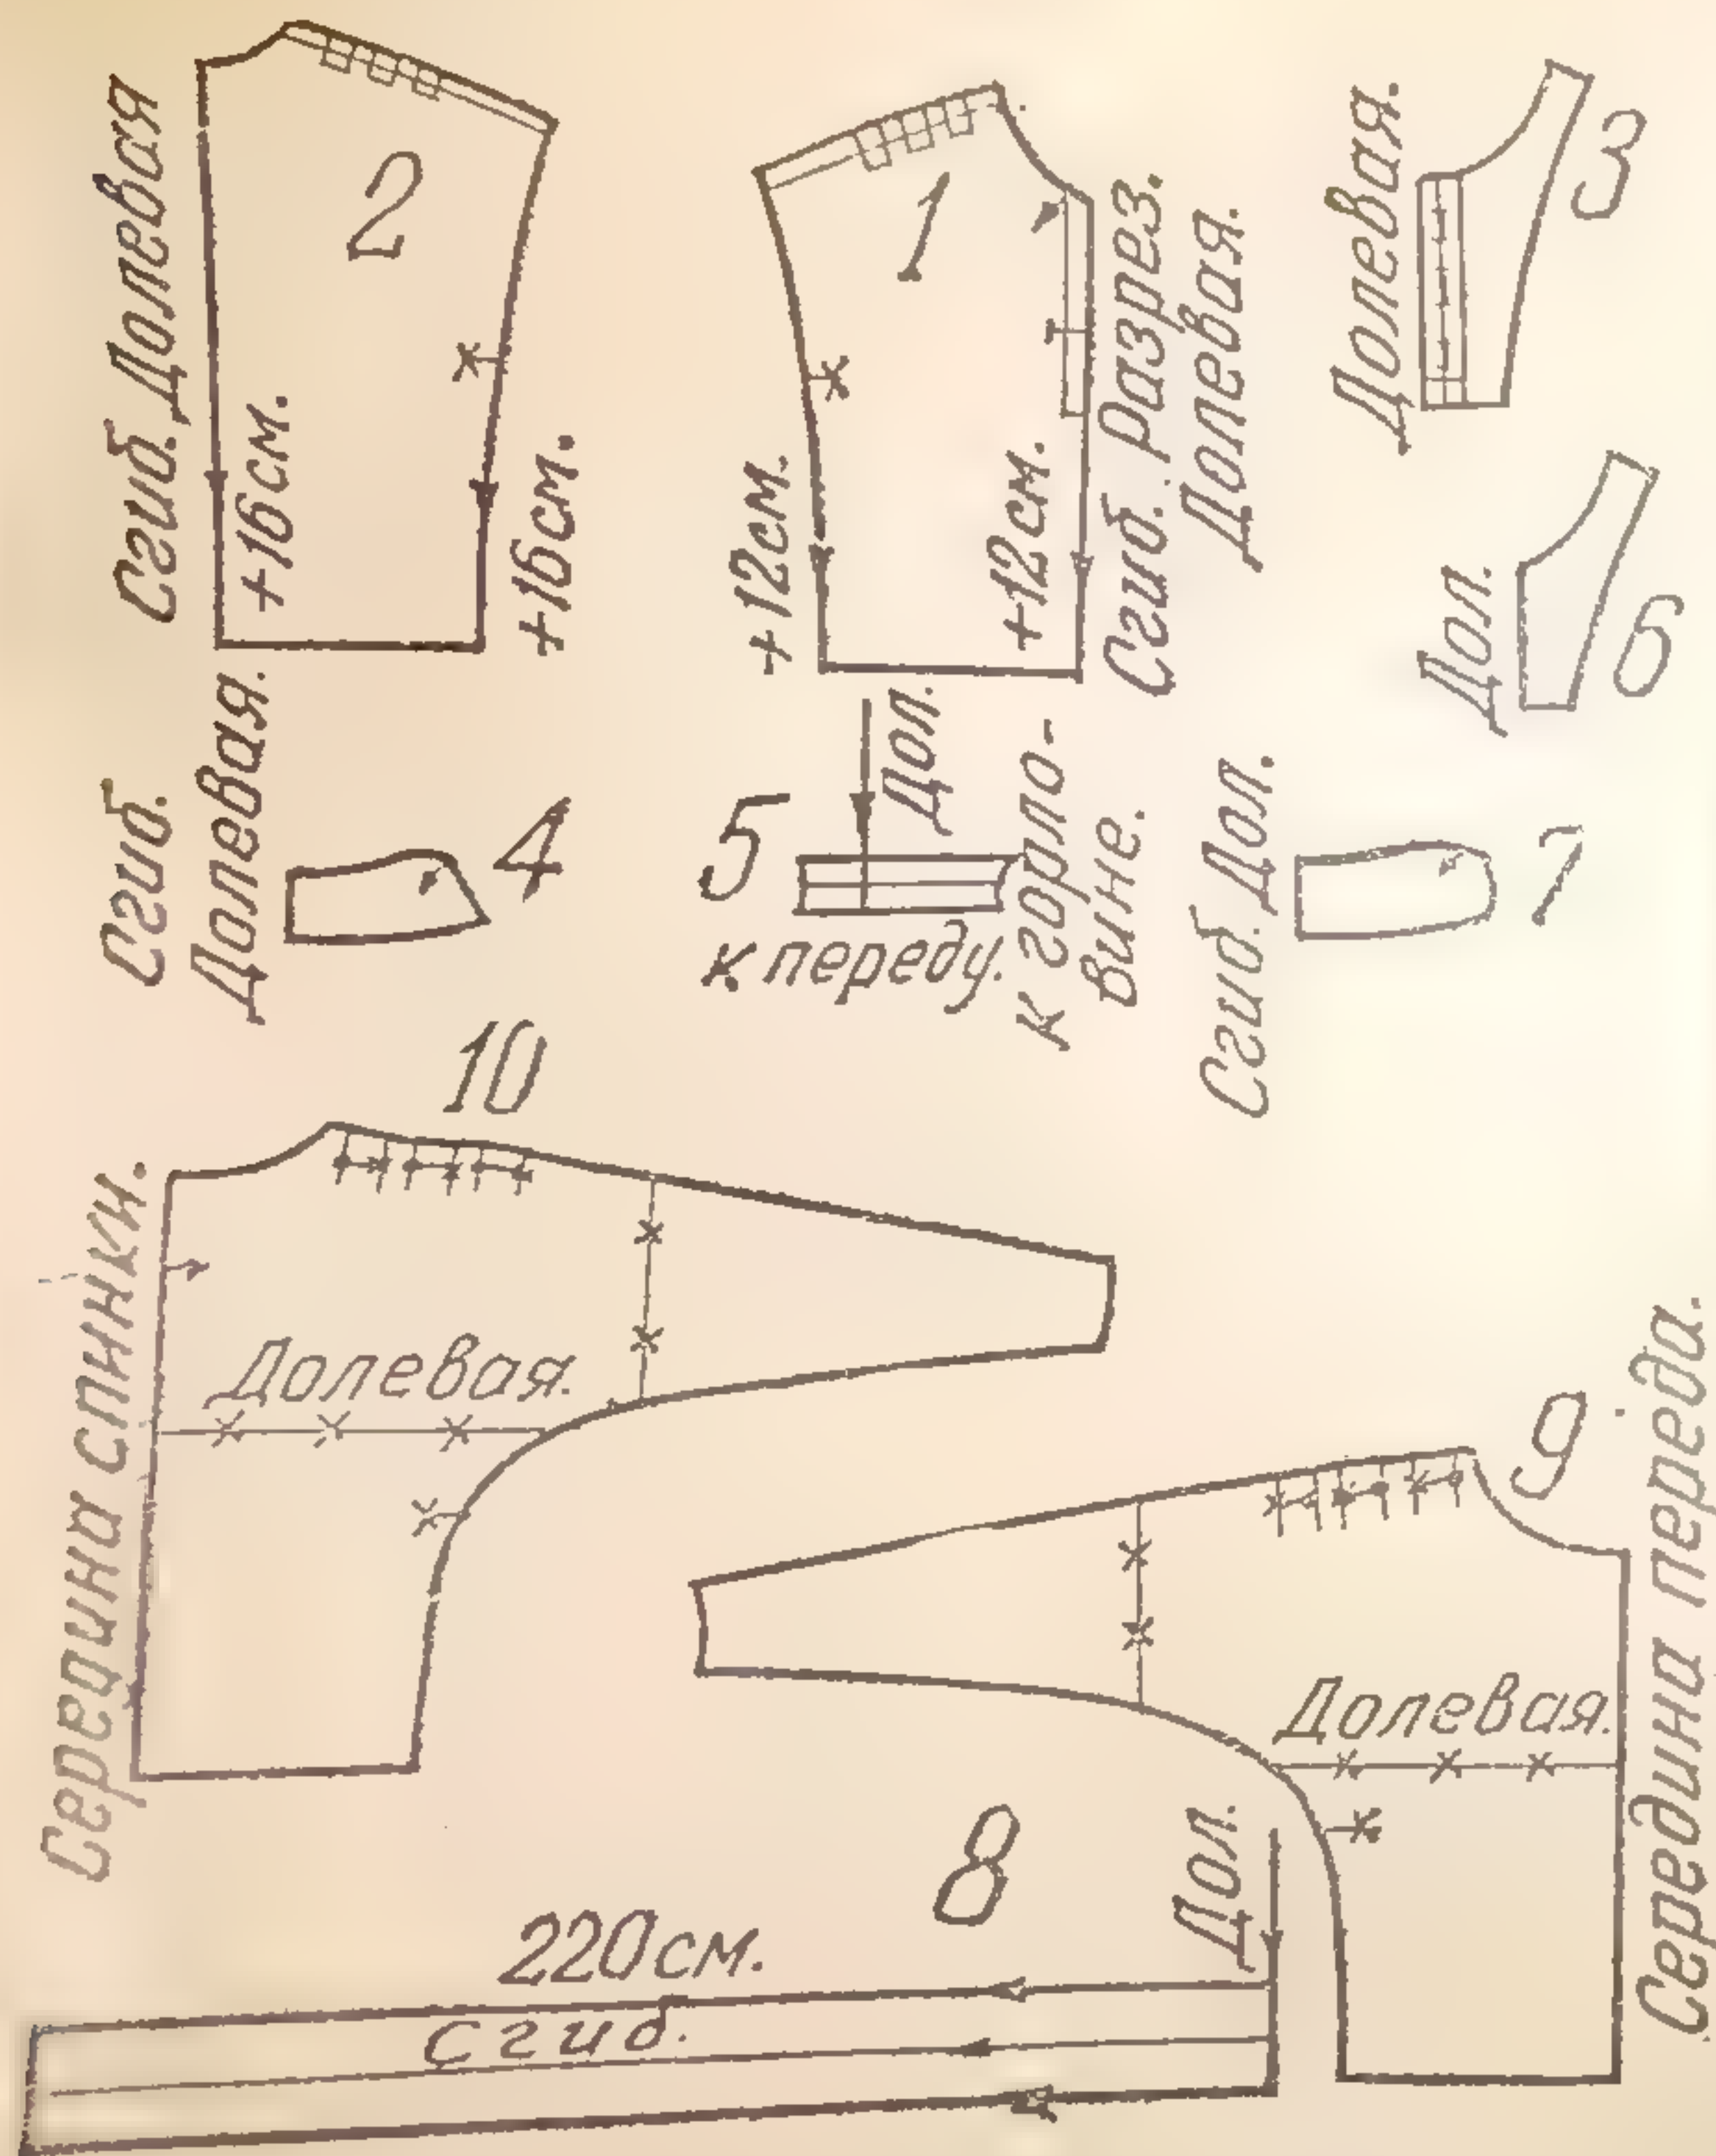 Сгиб. Долевая
2
+16см.
+16см.
1
+12см.
+12см.
Сгиб. Разрез.
Долевая.
Долевая.
3
Дол.
6
Сгиб.
Долевая.
4
5
Дол.
к переду.
к горло-
вине.
Сгиб. Дол.
7
10
Середина спинки.
Долевая.
9
Середина переда.
Долевая.
8
Дол.
220см.
Сгиб.